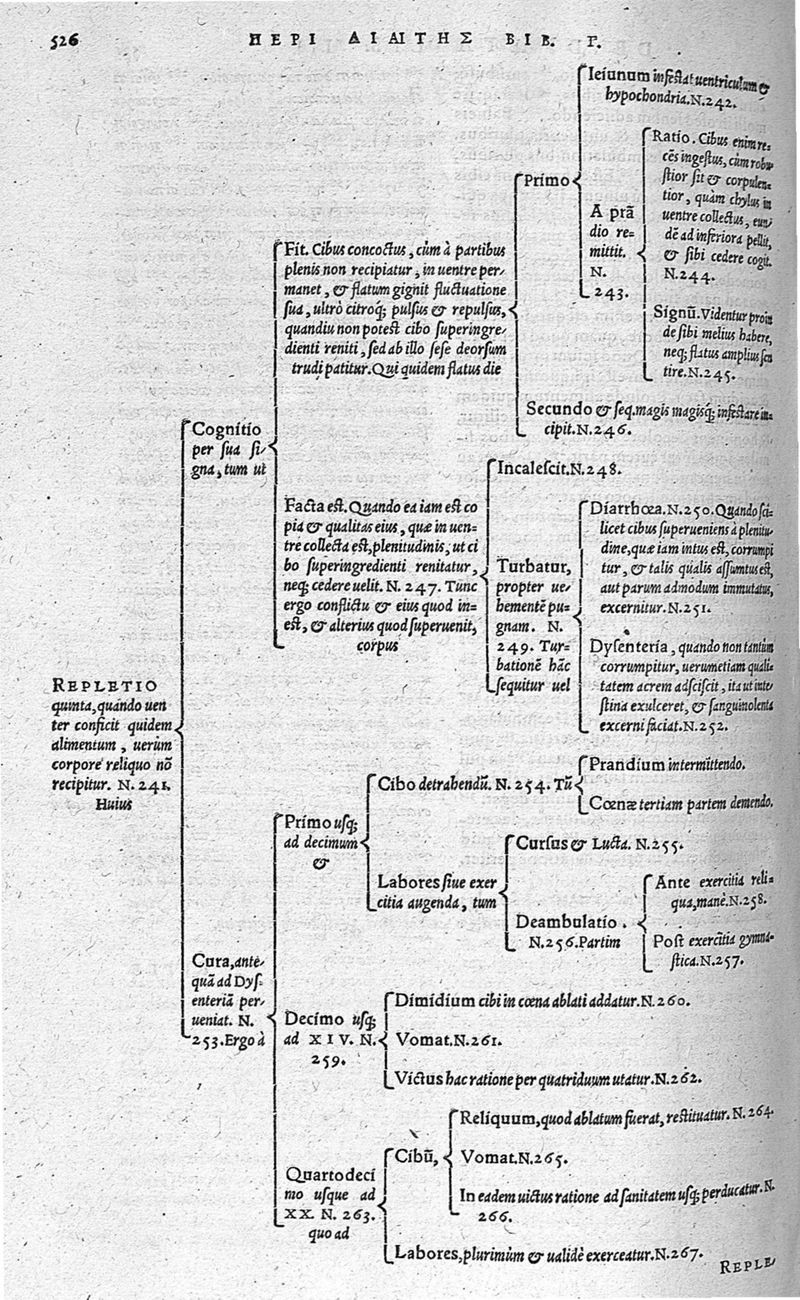 526
ΠΕΡΙ ΔΙΑΙΤΗΣ ΒΙΒ. Γ.
REPLETIO
quinta, quando uen
ter conficit quidem
alimentum, uerùm
corpore reliquo nõ
recipitur. N. 241.
Huius
Cognitio
per sua si-
gna, tum ut
Fit. Cibus concoctus, cùm à partibus
plenis non recipiatur, in uentre per-
manet, & flatum gignit fluctuatione
sua, ultrò citroq; pulsus & repulsus,
quandiu non potest cibo superingre-
dienti reniti, sed ab illo sese deorsum
trudi patitur. Qui quidem flatus die
Primo
Ieiunum infestat uentriculum &
hypochondria. N. 242.
A prã
dio re-
mittit.
N.
243.
Ratio. Cibus enim re-
cẽs ingestus, cùm robu-
stior sit & corpulen-
tior, quàm chylus in
uentre collectus, eun-
dẽ ad inferiora pellit,
& sibi cedere cogit.
N. 244.
Signũ. Videntur proin
de sibi melius habere,
neq; flatus amplius sen
tire. N. 245.
Secundo & seq. magis magisq; infestare in-
cipit. N. 246.
Facta est. Quando ea iam est co
pia & qualitas eius, quæ in uen-
tre collecta est, plenitudinis, ut ci
bo superingredienti renitatur,
neq; cedere uelit. N. 247. Tunc
ergo conflictu & eius quod in-
est, & alterius quod superuenit,
corpus
Incalescit. N. 248.
Turbatur,
propter ue-
hementẽ pu-
gnam. N.
249. Tur-
bationẽ hãc
sequitur uel
Diarrhœa. N. 250. Quando sci-
licet cibus superueniens à plenitu-
dine, quæ iam intus est, corrumpi
tur, & talis qualis assumtus est,
aut parum admodum immutatus,
excernitur. N. 251.
Dysenteria, quando non tantùm
corrumpitur, uerumetiam quali-
tatem acrem adsciscit, ita ut inte-
stina exulceret, & sanguinolenta
excerni faciat. N. 252.
Cura, ante-
quã ad Dys-
enteriã per-
ueniat. N.
253. Ergo à
Primo usq;
ad decimum
&
Cibo detrahendũ. N. 254. Tũ
Prandium intermittendo.
Cœnæ tertiam partem demendo.
Labores siue exer
citia augenda, tum
Cursus & Lucta. N. 255.
Deambulatio.
N. 256. Partim
Ante exercitia reli-
qua, manè. N. 258.
Post exercitia gymna-
stica. N. 257.
Decimo usq;
ad XIV. N.
259.
Dimidium cibi in cœna ablati addatur. N. 260.
Vomat. N. 261.
Victus hac ratione per quatriduum utatur. N. 262.
Quartodeci
mo usque ad
XX. N. 263.
quo ad
Cibũ,
Reliquum, quod ablatum fuerat, restituatur. N. 264.
Vomat. N. 265.
In eadem uictus ratione ad sanitatem usq; perducatur. N.
266.
Labores, plurimùm & ualidè exerceatur. N. 267.
REPLE-